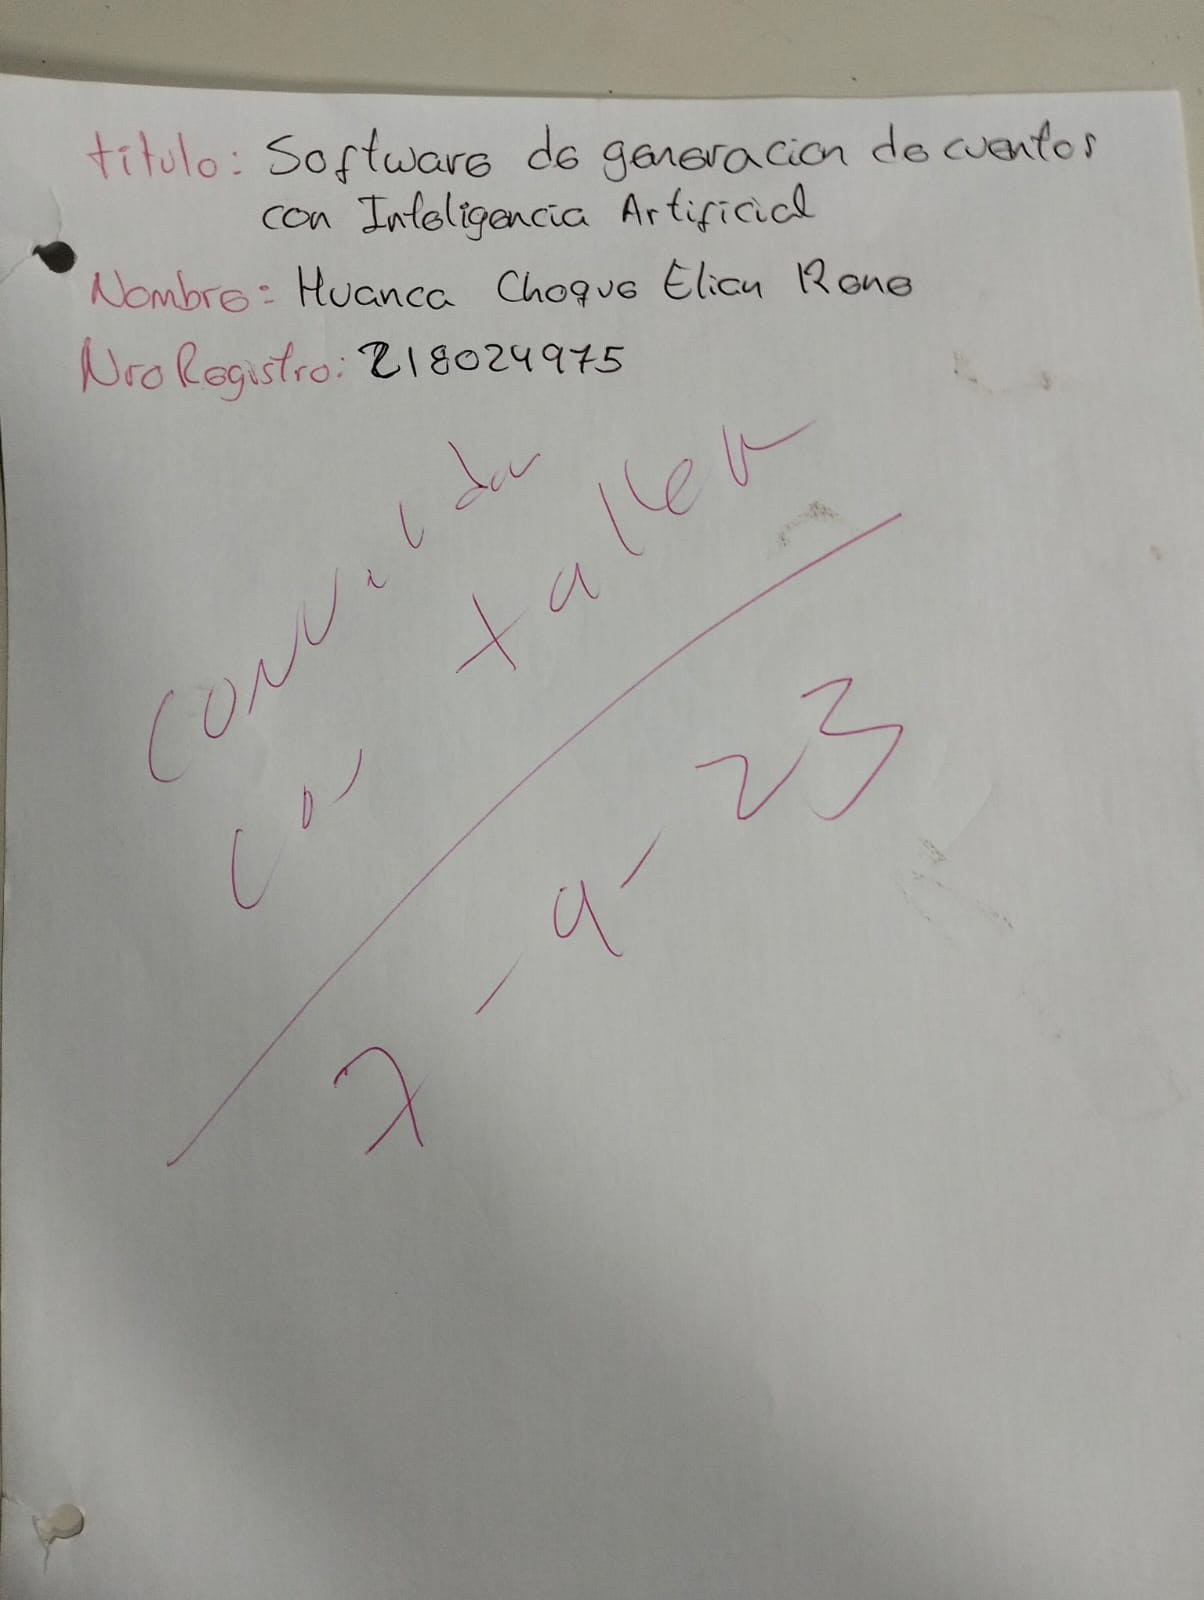 título: Software de generacion de cuentos
con Inteligencia Artificial
Nombre: Huanca Choque Elian Rene
Nro Registro: 218024975
convalidar
con taller
7-9-23